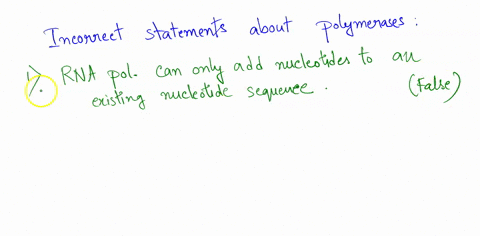 Incorrect statements about polymerases :
1) RNA pol. can only add nucleotides to an
existing nucleotide sequence. (False)